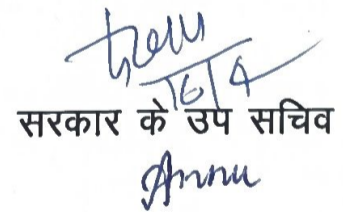 16/4
सरकार के उप सचिव
Annu